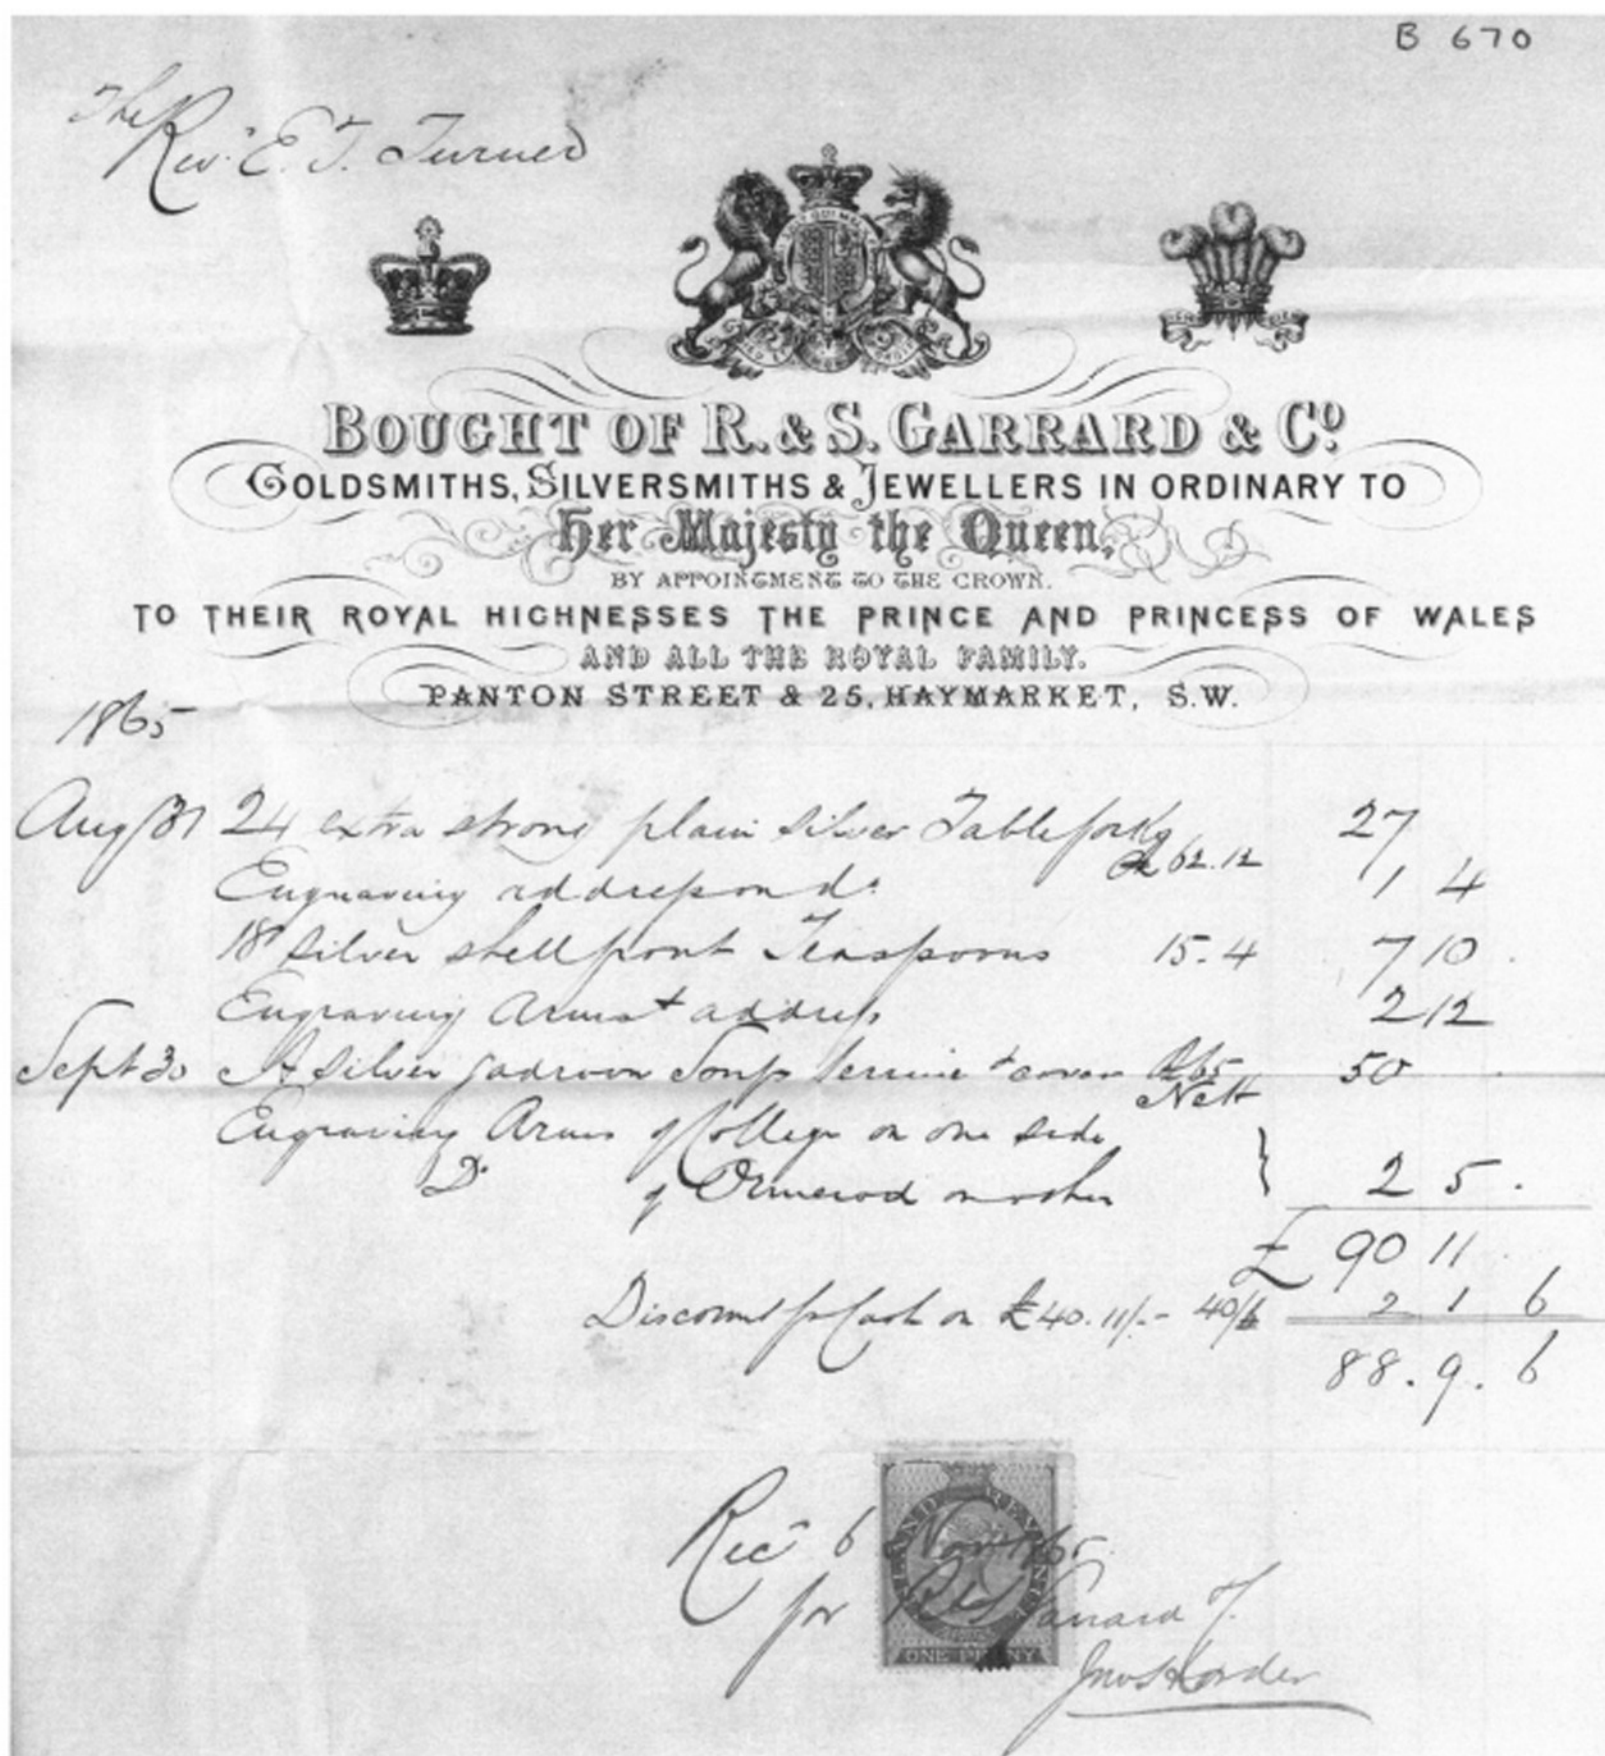 B 670
The
Revd. E. T. Turner
BOUGHT OF R. & S. GARRARD & Co.
GOLDSMITHS, SILVERSMITHS & JEWELLERS IN ORDINARY TO
Her Majesty the Queen,
BY APPOINTMENT TO THE CROWN.
TO THEIR ROYAL HIGHNESSES THE PRINCE AND PRINCESS OF WALES
AND ALL THE ROYAL FAMILY.
PANTON STREET & 25, HAYMARKET, S.W.
1865
Aug 31 24 extra strong plain silver Table forks 62.12 27
Engraving address on do. 1 4
18 silver shell front Teaspoons 15.4 7 10
Engraving Arms & address 2 12
Sept 30 A silver gadroon Soup terrine & cover 50
Nett
Engraving Arms of College on one side
Do. of Ormerod on other } 2 5.
£ 90 11
Discount for Cash on £40.11/.- 40/6 2 1 6
88.9.6
INLAND REVENUE
Recd 6 Nov 1865
for R & S Garrard
ONE PENNY